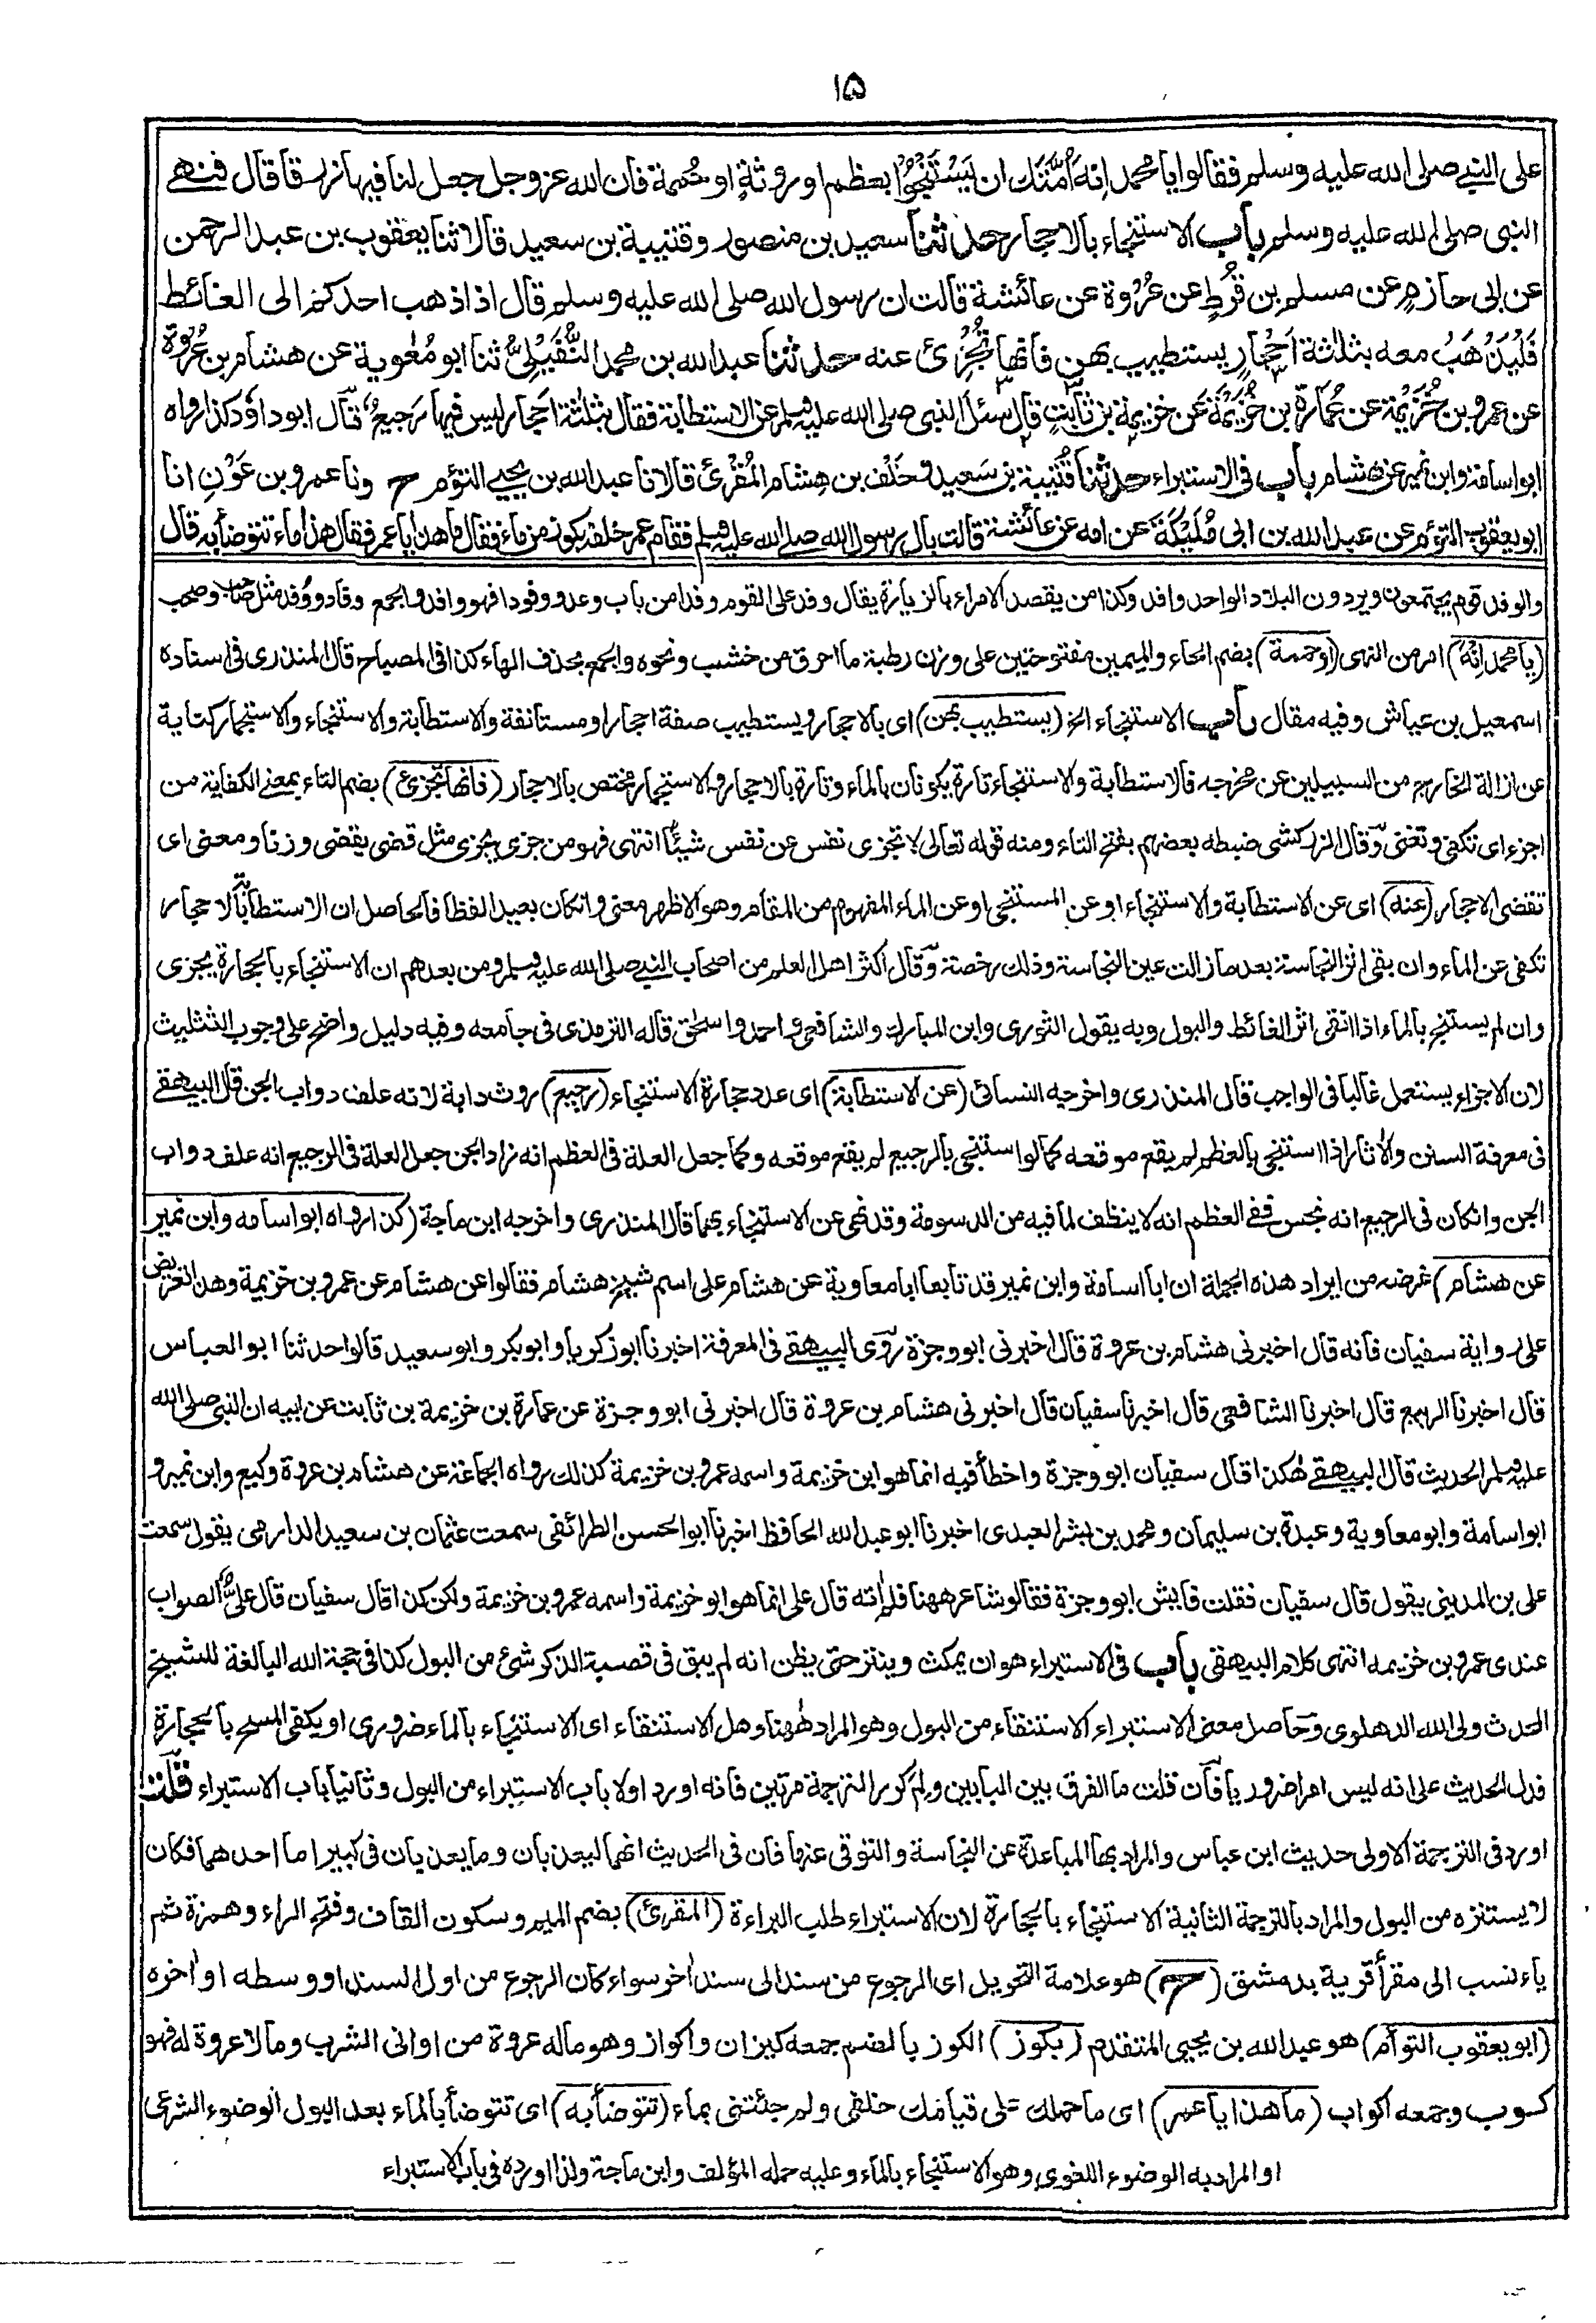 ۱۵
على النبي صلى الله عليه وسلم فقالوا يا محمد اِنْهَ اُمَّتَك ان يَسْتَنْجُوْا بعظم او روثةٍ او حُممة فان الله عز وجل جعل لنا فيها رزقا قال فنهى
النبى صلى الله عليه وسلم باب الاستنجاء بالاحجار حدثنا سعيد بن منصور وقتيبة بن سعيد قالا ثنا يعقوب بن عبد الرحمن
عن ابى حازمٍ عن مسلم بن قُرْطٍ عن عُرْوة عن عائشة قالت ان رسول الله صلى الله عليه وسلم قال اذا ذهب احدكم الى الغائط
فَلْيَذْهَبْ معه بثلاثة اَحْجارٍ يستطيب بهن فانها تُجْزِئ عنه حدثنا عبد الله بن محمد النُّفَيْلِىُّ ثنا ابو مُعٰوية عن هشام بن عُرْوة
عن عمرو بن خُزَيْمَة عن عُمارة بن خُزَيْمَة عن خزيمة بن ثابتٍ قال سئل النبى صلى الله عليه وسلم عن الاستطابة فقال بثلثة احجار ليس فيها رَجيعٌ قال ابو داؤد كذا رواه
ابو اسامة وابن نمير عن هشام باب فى الاستبراء حدثنا قُتَيبة بن سَعيد وخَلَف بن هِشام المُقْرِئ قالا نا عبد الله بن يحيى التوْءم ح ونا عمرو بن عَوْنٍ انا
ابو يعقوب التوءم عن عبد الله بن ابى مُلَيْكَة عن امه عن عائشة قالت بال رسول الله صلى الله عليه وسلم فقام عمر خلفه بكوز من ماء فقال ما هذا يا عمر فقال هذا ماء تتوضأ به قال
والوفد قوم يجتمعون ويردون البلاد الواحد وافد وكذا من يقصد الامراء بالزيارة يقال وفد على القوم وفدا من باب وعد ووفودا فهو وافد والجمع وفاد ووُفد مثل صاحب وصحب
(يا محمد اِنْهَ) امر من النهى (او حممة) بضم الحاء والميمين مفتوحتين على وزن رطبة ما احرق من خشب ونحوه والجمع بحذف الهاء كذا فى المصباح قال المنذرى فى اسناده
اسمعيل بن عياش وفيه مقال باب الاستنجاء الخ (يستطيب بهن) اى بالاحجار ويستطيب صفة احجار او مستانفة والاستطابة والاستنجاء والاستجمار كناية
عن ازالة الخارج من السبيلين عن مخرجه فالاستطابة والاستنجاء تارة يكونان بالماء وتارة بالاحجار والاستجمار مختص بالاحجار (فانها تجزئ) بضم التاء بمعنى الكفاية من
اجزء اى تكفى وتغنى وقال الزركشى ضبطه بعضهم بفتح التاء ومنه قوله تعالى لا تجزى نفس عن نفس شيئًا انتهى فهو من جزى يجزى مثل قضى يقضى وزنا ومعنى اى
تقضى الاحجار (عنه) اى عن الاستطابة والاستنجاء او عن المستنجى او عن الماء المفهوم من المقام وهو الاظهر معنى وانكان بعيد الفظا فالحاصل ان الاستطابة بالاحجار
تكفى عن الماء وان بقى اثر النجاسة بعد ما زالت عين النجاسة وذلك رخصة وقال اكثر اهل العلم من اصحاب النبى صلى الله عليه وسلم ومن بعدهم ان الاستنجاء بالحجارة يجزى
وان لم يستنج بالماء اذا انقى اثر الغائط والبول وبه يقول الثورى وابن المبارك والشافعى واحمد واسحٰق قاله الترمذى فى جامعه وفيه دليل واضح على وجوب التثليث
لان الاجزاء يستعمل غالبا فى الواجب قال المنذرى واخرجه النسائى (عن الاستطابة) اى عدد حجارة الاستنجاء (رجيع) روث دابة لانه علف دواب الجن قال البيهقى
فى معرفة السنن والأثار اذا استنجى بالعظم لم يقع موقعه كما لو استنجى بالرجيع لم يقع موقعه وكما جعل العلة فى العظم انه زاد الجن جعل العلة فى الرجيع انه علف دواب
الجن وانكان فى الرجيع انه نجس ففى العظم انه لا ينظف لما فيه من الدسومة وقد نهى عن الاستنجاء بهما قال المنذرى واخرجه ابن ماجة (كذا رواه ابو اسامه وابن نمير
عن هشام) غرضه من ايراد هذه الجملة ان ابا اسامة وابن نمير قد تابعا ابا معاوية عن هشام على اسم شيخ هشام فقالوا عن هشام عن عمرو بن خزيمة وهذا تعريض
على رواية سفيان فانه قال اخبرنى هشام بن عروة قال اخبرنى ابو وجزة روى البيهقى فى المعرفة اخبرنا ابو زكريا وابو بكر وابو سعيد قالوا حدثنا ابو العباس
قال اخبرنا الربيع قال اخبرنا الشافعى قال اخبرنا سفيان قال اخبرنى هشام بن عروة قال اخبرنى ابو وجزة عن عمارة بن خزيمة بن ثابت عن ابيه ان النبى صلى الله
عليه وسلم الحديث قال البيهقى هٰكذا قال سفيان ابو وجزة واخطأ فيه انما هو ابن خزيمة واسمه عمرو بن خزيمة كذلك رواه الجماعة عن هشام بن عروة وكيع وابن نمير و
ابو اسامة وابو معاوية وعبدة بن سليمان ومحمد بن بشر العبدى اخبرنا ابو عبد الله الحافظ اخبرنا ابو الحسن الطرائفى سمعت عثمان بن سعيد الدارمى يقول سمعت
على بن المدينى يقول قال سفيان فقلت فايش ابو وجزة فقالو شاعر ههنا فلم اته قال على انما هو ابو خزيمة واسمه عمرو بن خزيمة ولكن كذا قال سفيان قال علىّ الصواب
عندى عمرو بن خزيمه انتهى كلام البيهقى باب فى الاستبراء هو ان يمكث وينتر حتى يظن انه لم يبق فى قصبة الذكر شئ من البول كذا فى حجة الله البالغة للشيخ
المحدث ولى الله الدهلوى وحاصل معنى الاستبراء الاستنقاء من البول وهو المراد ههنا وهل الاستنقاء اى الاستنجاء بالماء ضرورى او يكفى المسح بالحجارة
فدل الحديث على انه ليس امرا ضروريا فان قلت ما الفرق بين البابين ولم كرر الترجمة مرتين فانه اورد اولا باب الاستبراء من البول وثانيا باب الاستبراء قلت
اورد فى الترجمة الاولى حديث ابن عباس والمراد بها المباعدة عن النجاسة والتوقى عنها فان فى الحديث انهما ليعذبان وما يعذبان فى كبير اما احدهما فكان
لا يستنزه من البول والمراد بالترجمة الثانية الاستنجاء بالحجارة لان الاستبراء طلب البراءة (المقرئ) بضم الميم وسكون القاف وفتح الراء وهمزة ثم
ياء نسب الى مقرأ قرية بدمشق (ح) هو علامة التحويل اى الرجوع من سند الى سند اٰخر سواء كان الرجوع من اول السند او وسطه او اٰخره
(ابو يعقوب التوأم) هو عبد الله بن يحيى المتقدم (بكوز) الكوز بالضم جمعه كيزان واكواز وهو ماله عروة من اوانى الشرب ومالا عروة له فهو
كوب وجمعه اكواب (ما هذا يا عمر) اى ما حملك على قيامك خلفى ولم جئتنى بماء (تتوضأ به) اى تتوضأ بالماء بعد البول الوضوء الشرعى
او المراد به الوضوء اللغوى وهو الاستنجاء بالماء وعليه حمله المؤلف وابن ماجة ولذا اورده فى باب الاستبراء